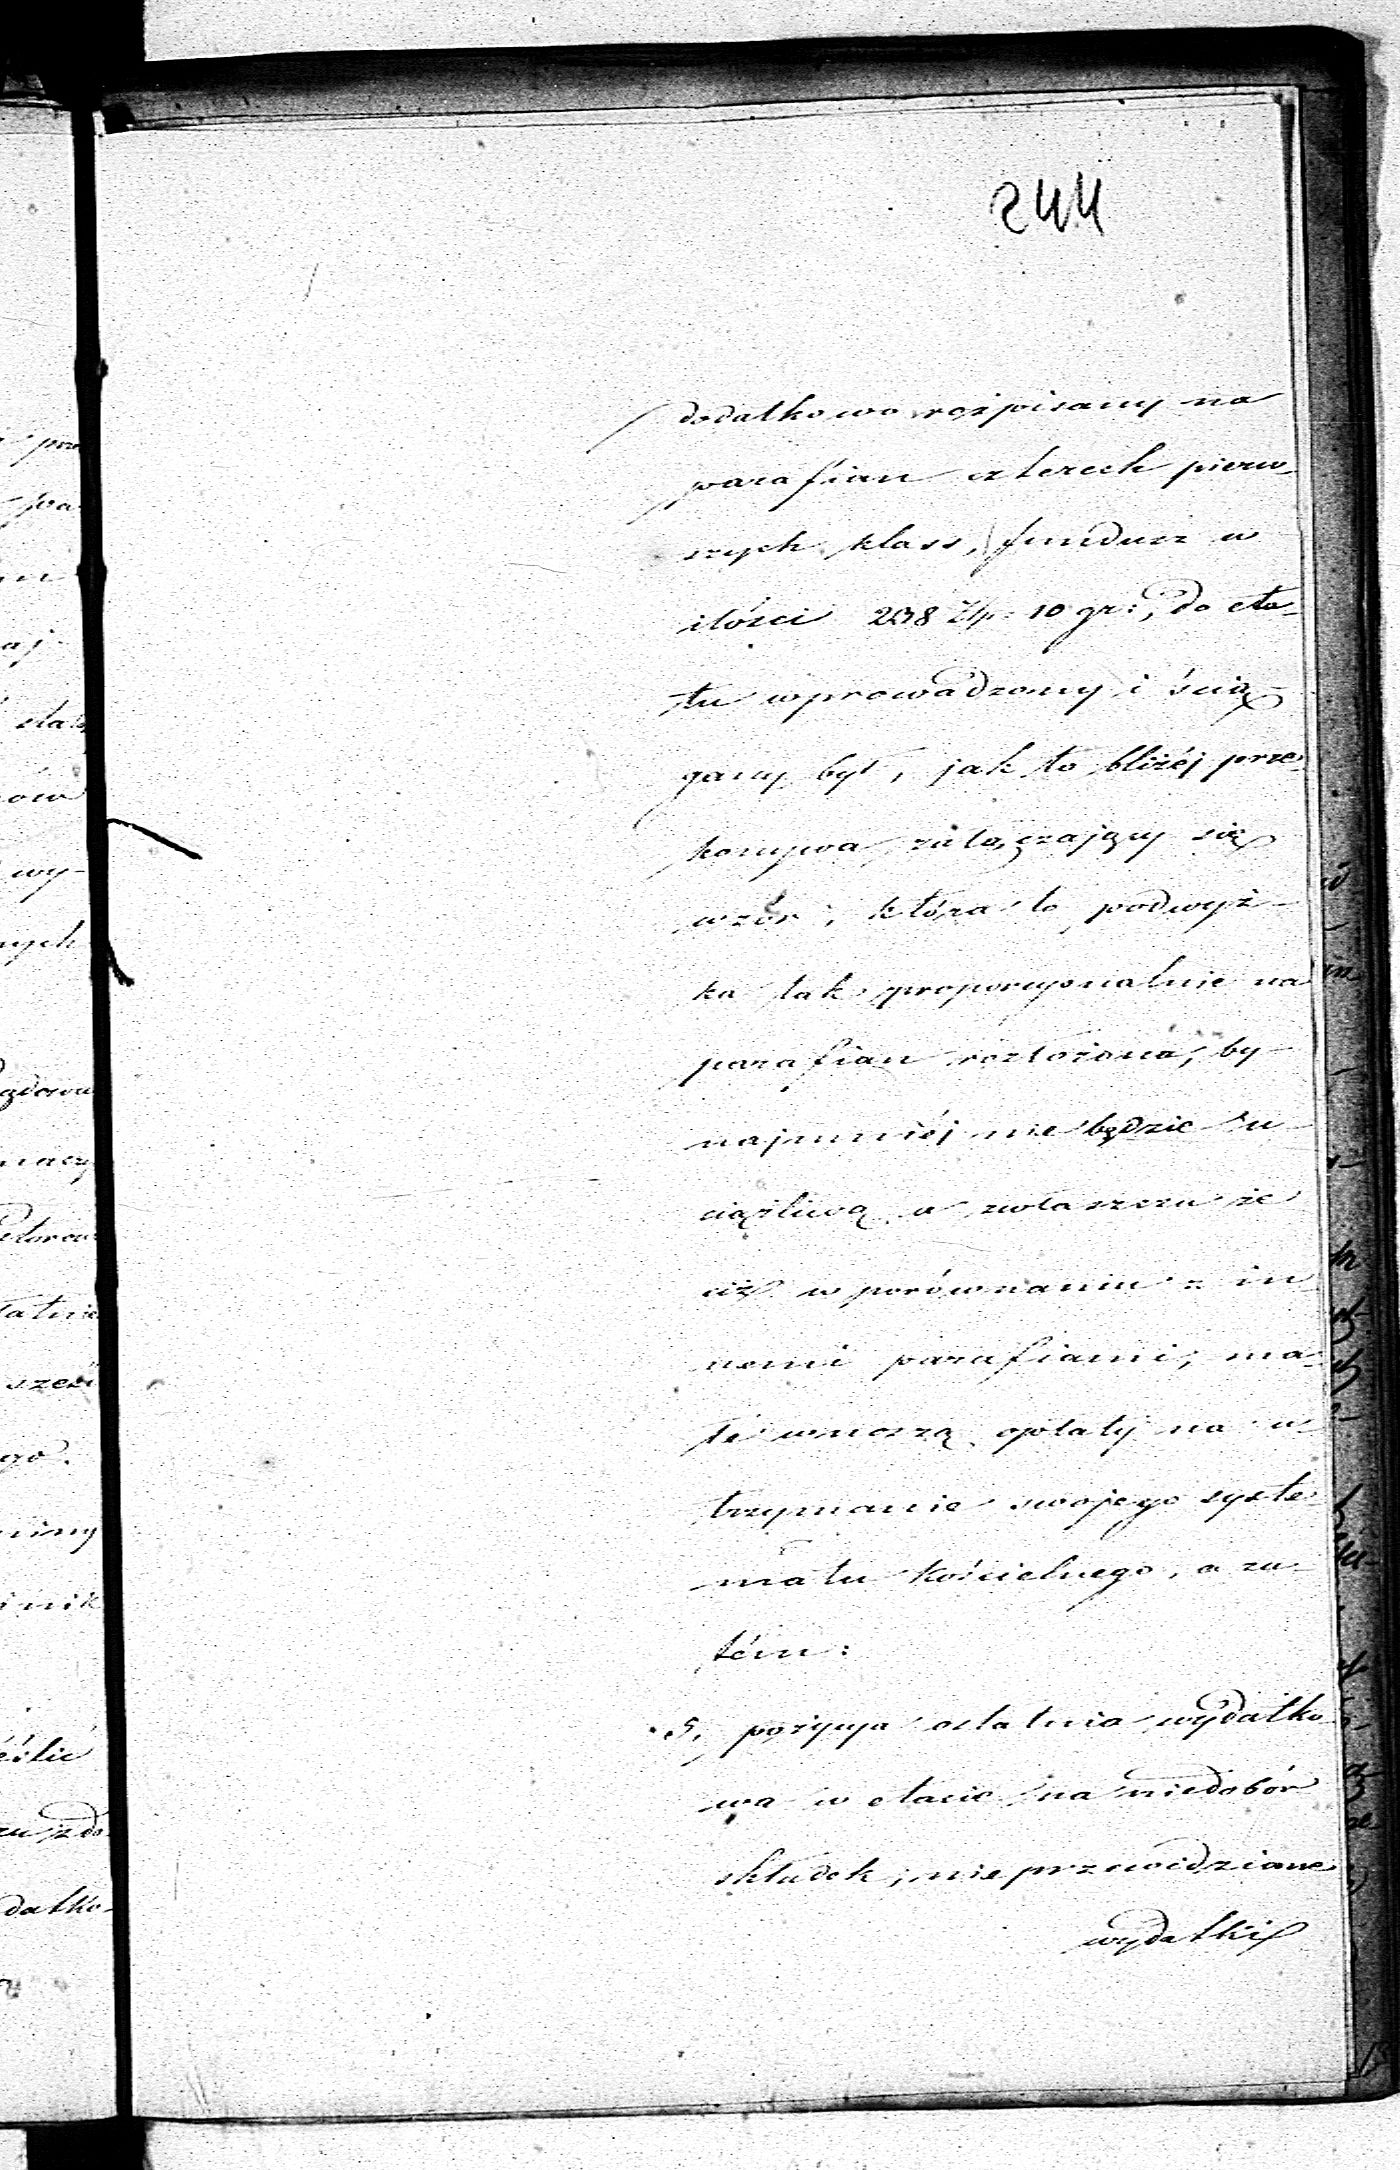 244
dodatkowo rozpisany na
parafian czterech pierw-
szych klass, fundusz w
ilości 238 Złp: 10 gr:, do eta-
tu wprowadzony i ścią-
gany był, jak to bliżéj prze-
konywa załączający się
wzór; która to podwyż-
ka tak proporcyonalnie na
parafian rozłożona, by-
najmniéj nie będzie u-
ciążliwą a zwłaszcza że
ciż w porównaniu z in-
nemi parafiami, ma-
łe wnoszą opłaty na u-
trzymanie swojego syste-
matu kościelnego, a za-
tém:
5, pozycya ostatnia wydatko-
wa w etacie na niedobór
składek, nieprzewidziane
wydatki